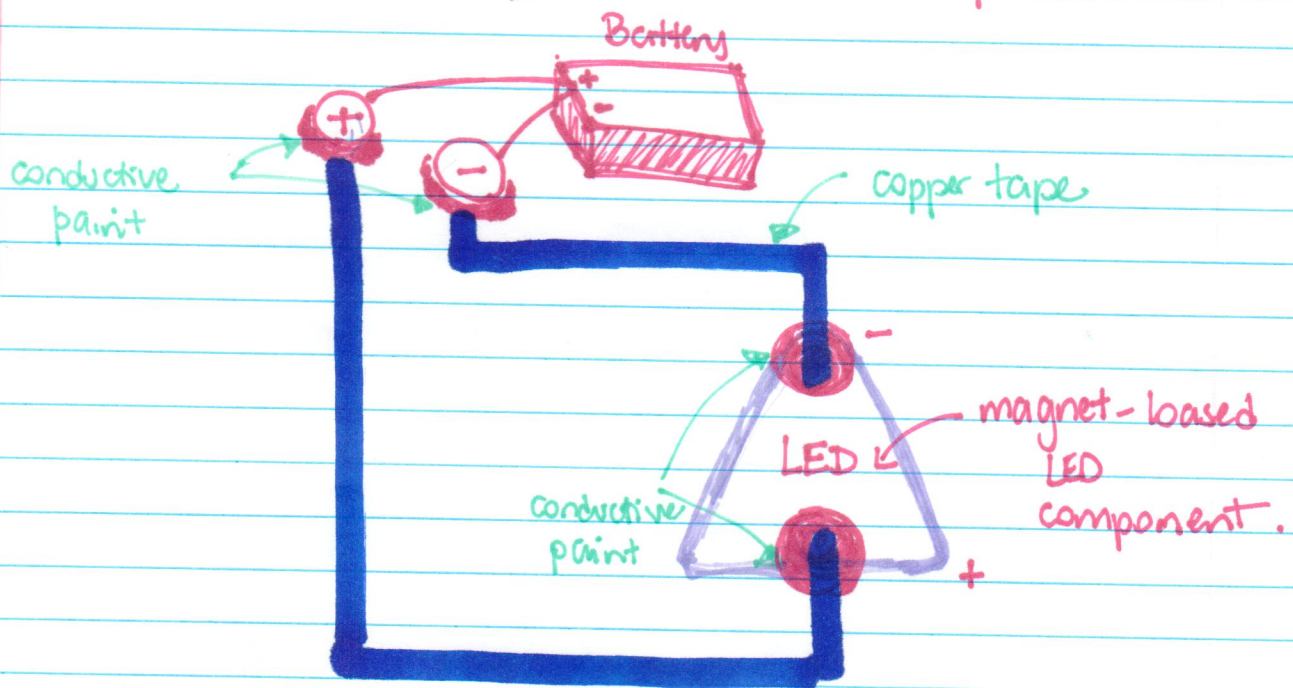 Battery
+
-
+
-
conductive
paint
copper tape
-
magnet-based
LED
component.
LED
conductive
paint
+